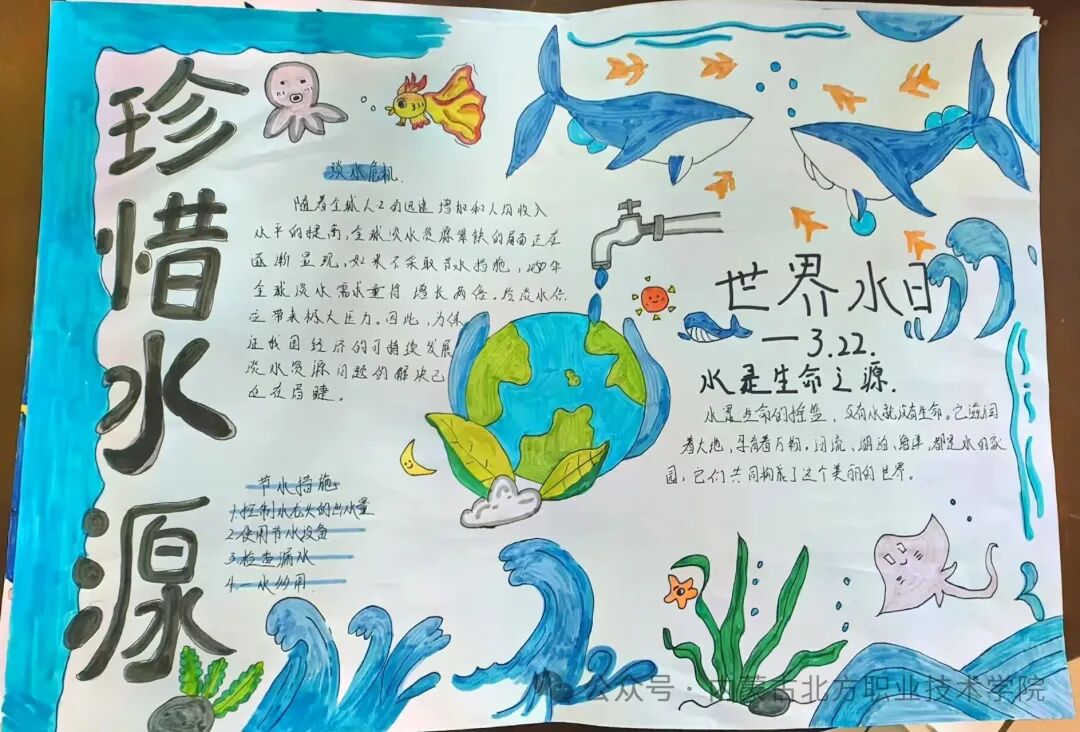 珍惜水源
淡水危机
随着全球人口的迅速增加和人均收入
水平的提高,全球淡水资源紧缺的局面正在
逐渐显现,如果不采取节水措施,2050年
全球淡水需求量将增长两倍。给淡水供
应带来极大压力。因此,为保
证我国经济的可持续发展
淡水资源问题的解决已
迫在眉睫。
节水措施
1.控制水龙头的出水量
2.使用节水设备
3.检查漏水
4.一水多用
世界水日
—3.22.
水是生命之源.
水是生命的摇篮,没有水就没有生命。它滋润
着大地,孕育着万物。河流、湖泊、海洋,都是水的家
园,它们共同构成了这个美丽的世界。
公众号·内蒙古北方职业技术学院